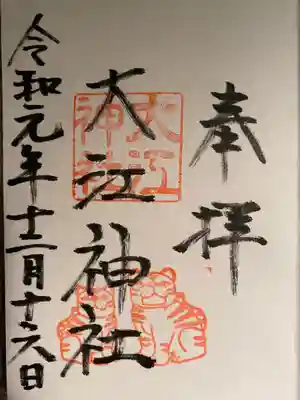 奉拝
大江神社
大江神社
令和元年十二月十六日